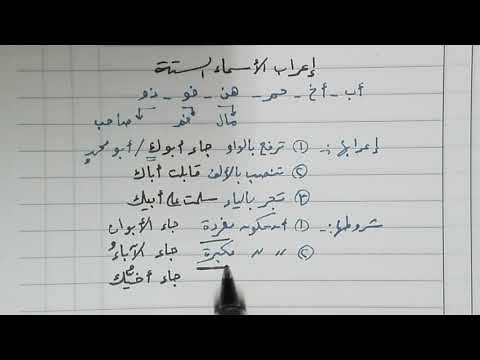 إعراب الأسماء الستة
أب - أخ - حم - هن - فو - ذو
مال فم صاحب
إعرابها:- ① ترفع بالواو جاء أبوك / أبو محمدٍ
② تنصب بالألف قابلت أباك
③ تجر بالياء سلمت على أبيك
شروطها:- ① أن تكون مفردة جاء الأبوان
② " " مكبرة جاء الآباءُ
جاء أخيُّك